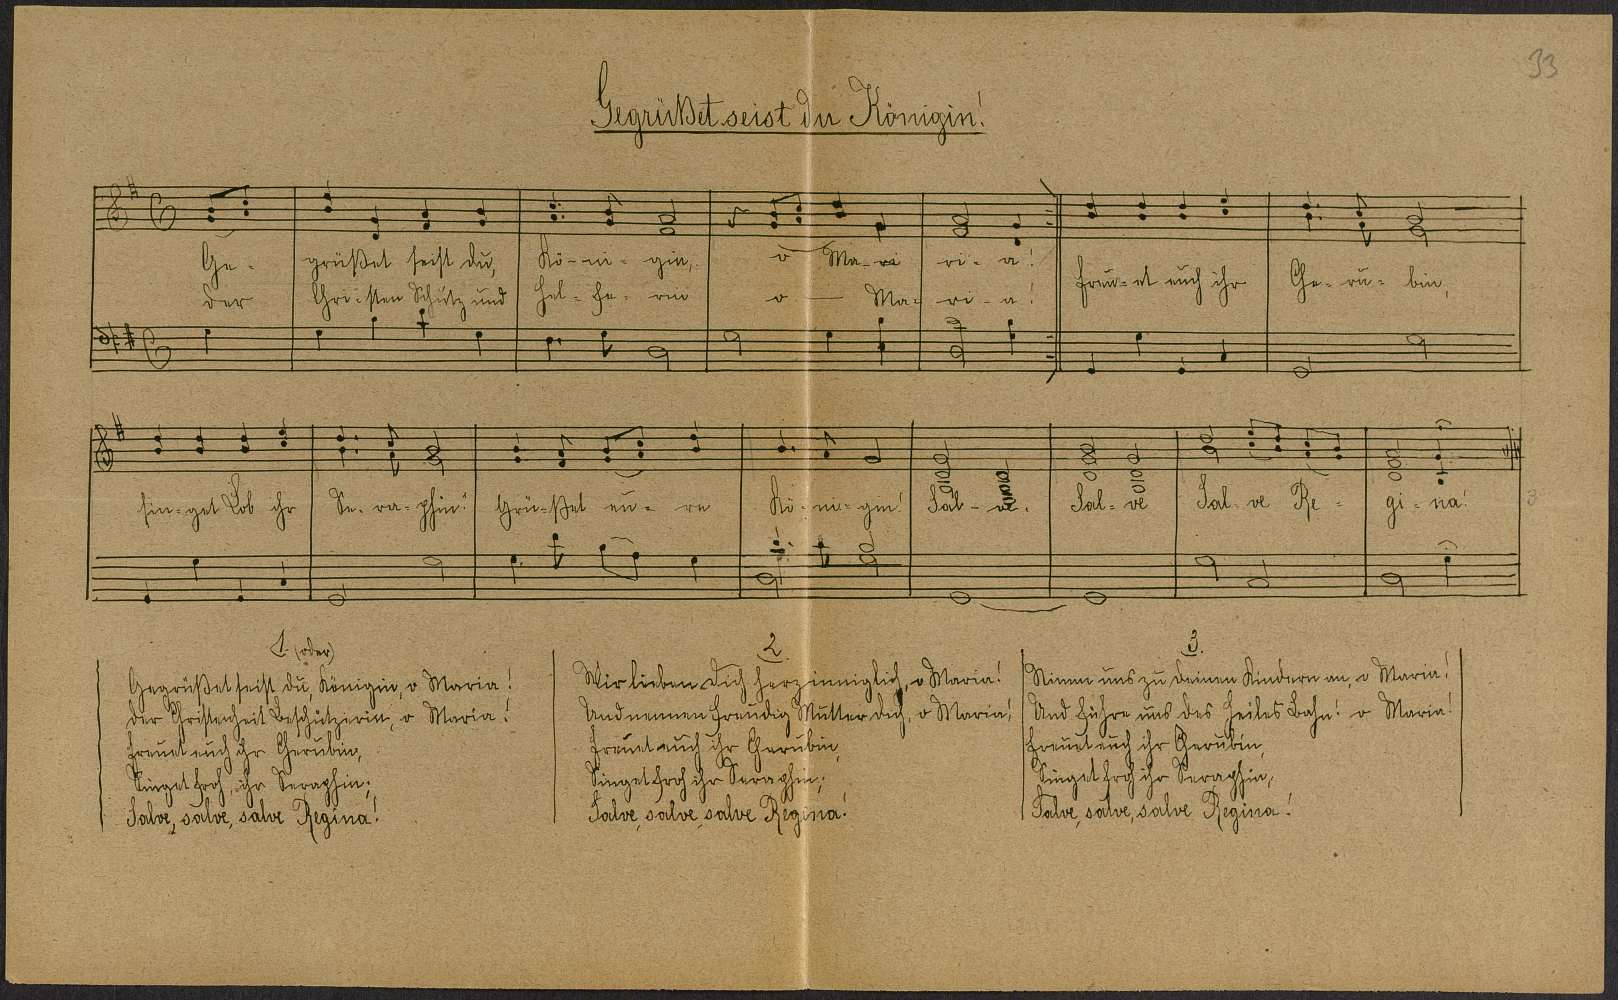 33
Gegrüßet seist du Königin!
Ge- grüßet seist du, Kö-ni-gin, o Ma-ri ri-a! Freu-et euch ihr Che-ru-bin,
der Chri-sten Schutz und Hel-fe-rin o Ma-ri-a!
sin-get Lob ihr Se-ra-phin! Grü-ßet eu-re Kö-ni-gin! Sal-ve. Sal-ve Sal-ve Re-gi-na!
3
1 (oder)
Gegrüßet seist du, Königin, o Maria!
der Christenheit Beschützerin, o Maria!
freuet euch ihr Cherubin,
Singet froh, ihr Seraphin;
Salve, salve, salve Regina!
2.
Wir lieben dich herzinniglich, o Maria!
Und nennen freudig Mutter dich, o Maria!
freuet euch ihr Cherubin,
Singet froh ihr Seraphin;
Salve, salve, salve Regina!
3.
Nimm uns zu deinen Kindern an, o Maria!
Und führe uns des Heiles Bahn! o Maria!
freuet euch ihr Cherubin,
Singet froh ihr Seraphin,
Salve, salve, salve Regina!